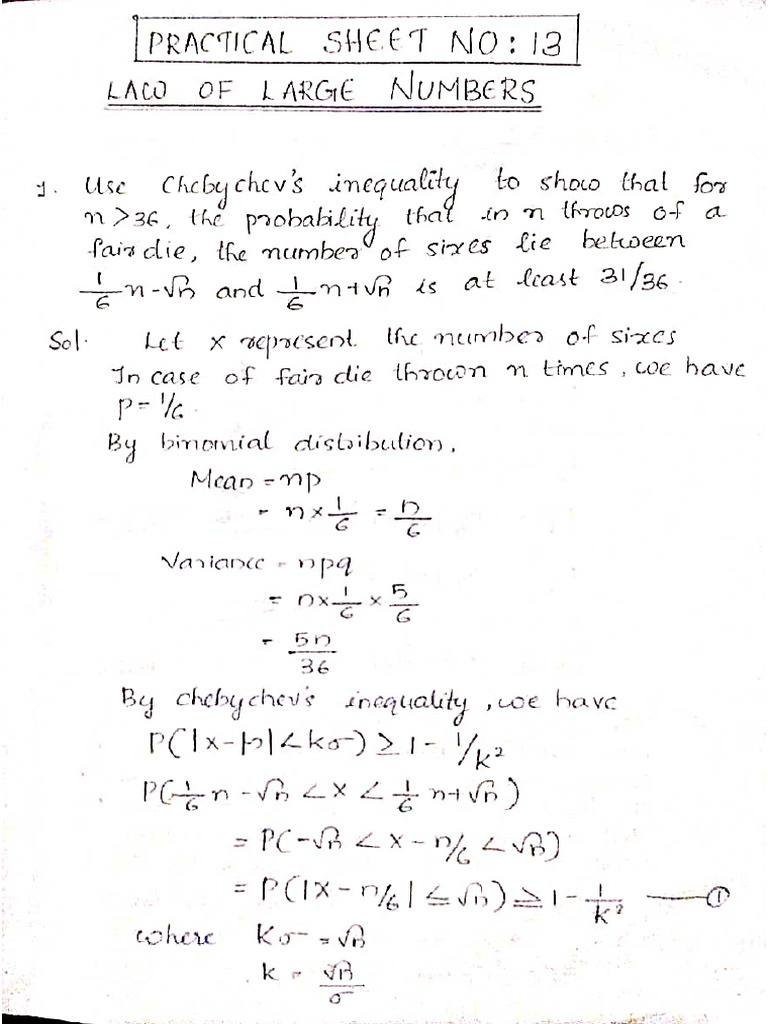 PRACTICAL SHEET NO: 13
LAW OF LARGE NUMBERS
1. Use Chebychev's inequality to show that for
n>36, the probability that in n throws of a
fair die, the number of sixes lie between
1/6 n-√n and 1/6 n+√n is at least 31/36.
Sol. Let x represent the number of sixes
In case of fair die thrown n times, we have
P = 1/6.
By binomial distribution,
Mean = np
= n × 1/6 = n/6
Variance = npq
= n × 1/6 × 5/6
= 5n/36
By chebychev's inequality, we have
P(|x-μ|<kσ) ≥ 1 - 1/k²
P(1/6 n - √n < x < 1/6 n + √n)
= P(-√n < x - n/6 < √n)
= P(|x - n/6| ≤ √n) ≥ 1 - 1/k² —— ①
where kσ = √n
k = √n/σ